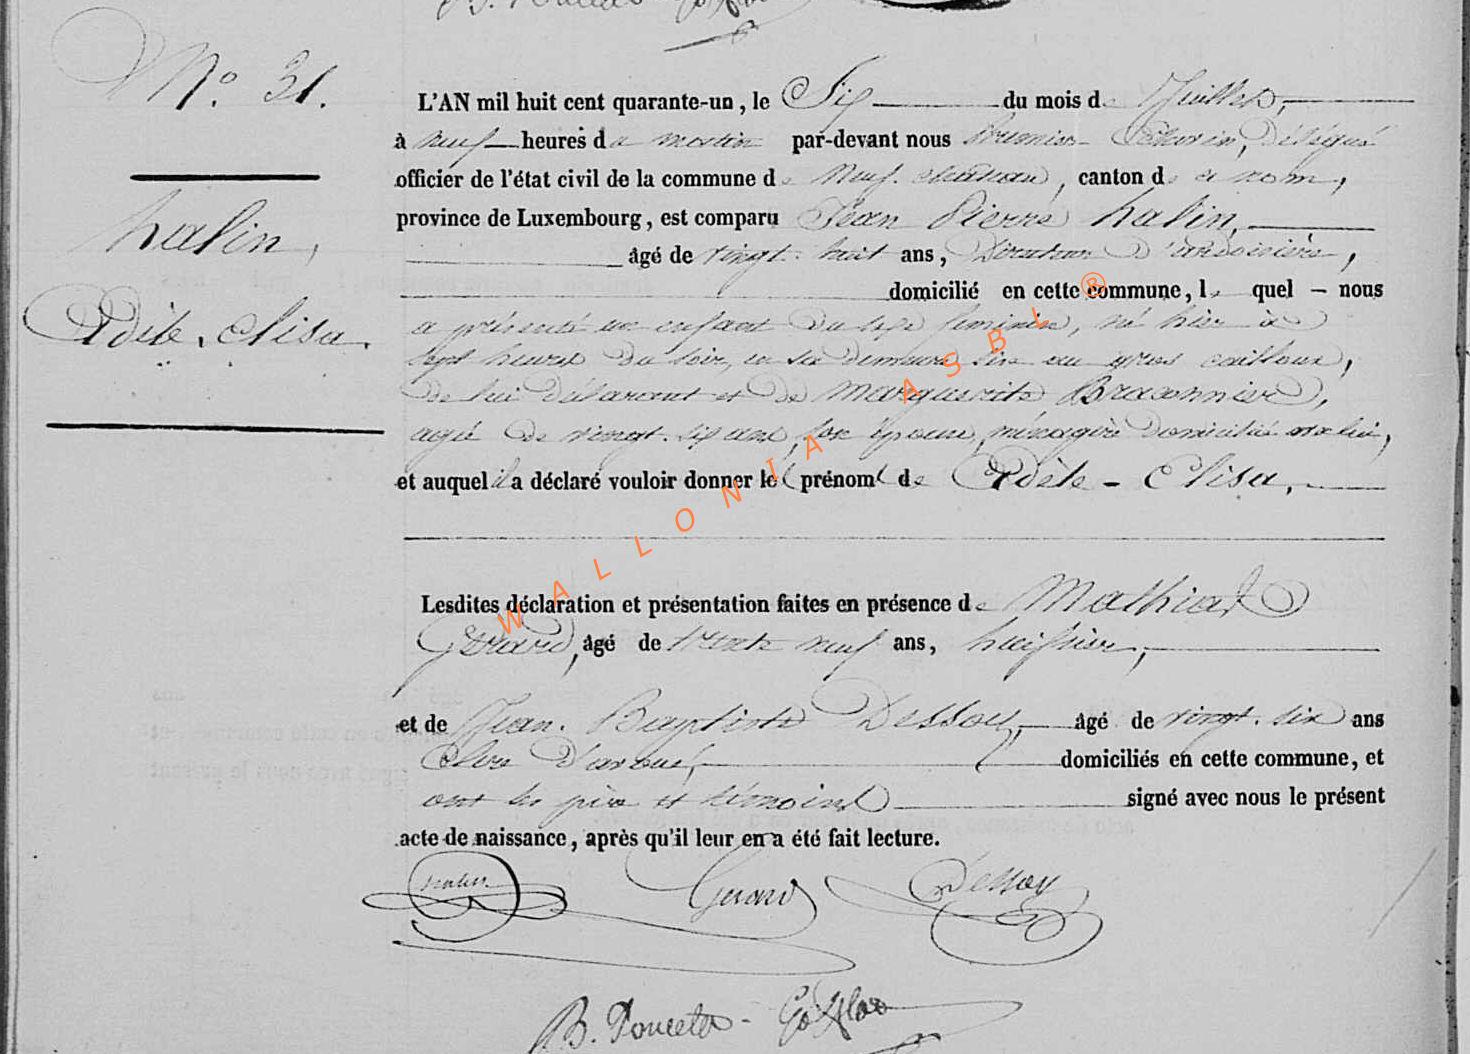 N.° 31.
L'AN mil huit cent quarante-un, le Six du mois de Juillet,
à neuf heures du matin par-devant nous Premier Echevin, Délégué
officier de l'état civil de la commune de Neufchateau, canton de ce nom,
province de Luxembourg, est comparu Jean Pierre halin,
halin,
âgé de vingt-huit ans, Directeur D'ardoisière,
domicilié en cette commune, le quel – nous
Adèle, Elisa.
a présenté un enfant du sexe féminin, né hier à
sept heures du soir, en sa demeure sise au gros cailloux,
de lui déclarant et de Marguerite Braconnier,
agée de vingt-six ans, son épouse, ménagère domiciliée avec lui,
et auquel il a déclaré vouloir donner les prénoms de Adèle - Elisa,
Lesdites déclaration et présentation faites en présence de Mathias
Gerard, âgé de trente neuf ans, huissier,
et de Jean-Baptiste Dessoy, âgé de vingt-six ans
Clerc D'avoué, domiciliés en cette commune, et
ont les père et témoins signé avec nous le présent
acte de naissance, après qu'il leur en a été fait lecture.
halin Gerard Dessoy
B. Poncelet
WALLONIA ASBL ®